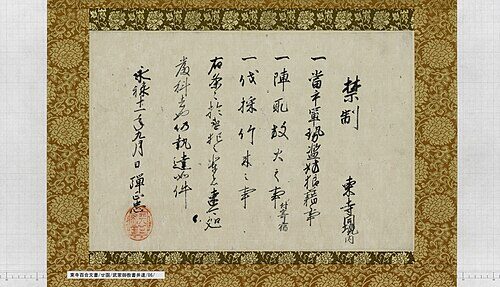 禁制 東寺境内
一當手軍勢濫妨狼藉事
一陣取放火之事付寄宿
一伐採竹木之事
右条々於違犯之輩者速可処
厳科者也仍執達如件
永禄十一年九月 日 弾正忠
東寺百合文書/せ函/武家御教書并達/86/